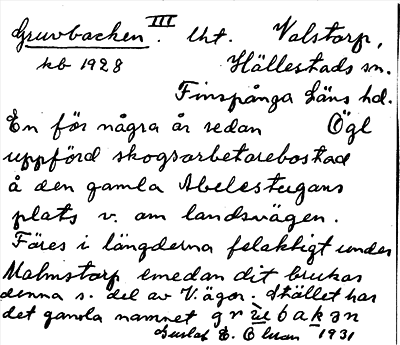 Gruvbacken III. lht. Valstorp,
kb 1928 Hällestads sn.
Finspånga läns hd.
En för några år sedan Ögl
uppförd skogsarbetarebostad
å den gamla Abelestugans
plats v. om landsvägen.
Föres i längderna felaktigt under
Malmstorp emedan dit brukas
denna s. del av V:s ägor. Stället har
det gamla namnet
Gustaf E. 1931